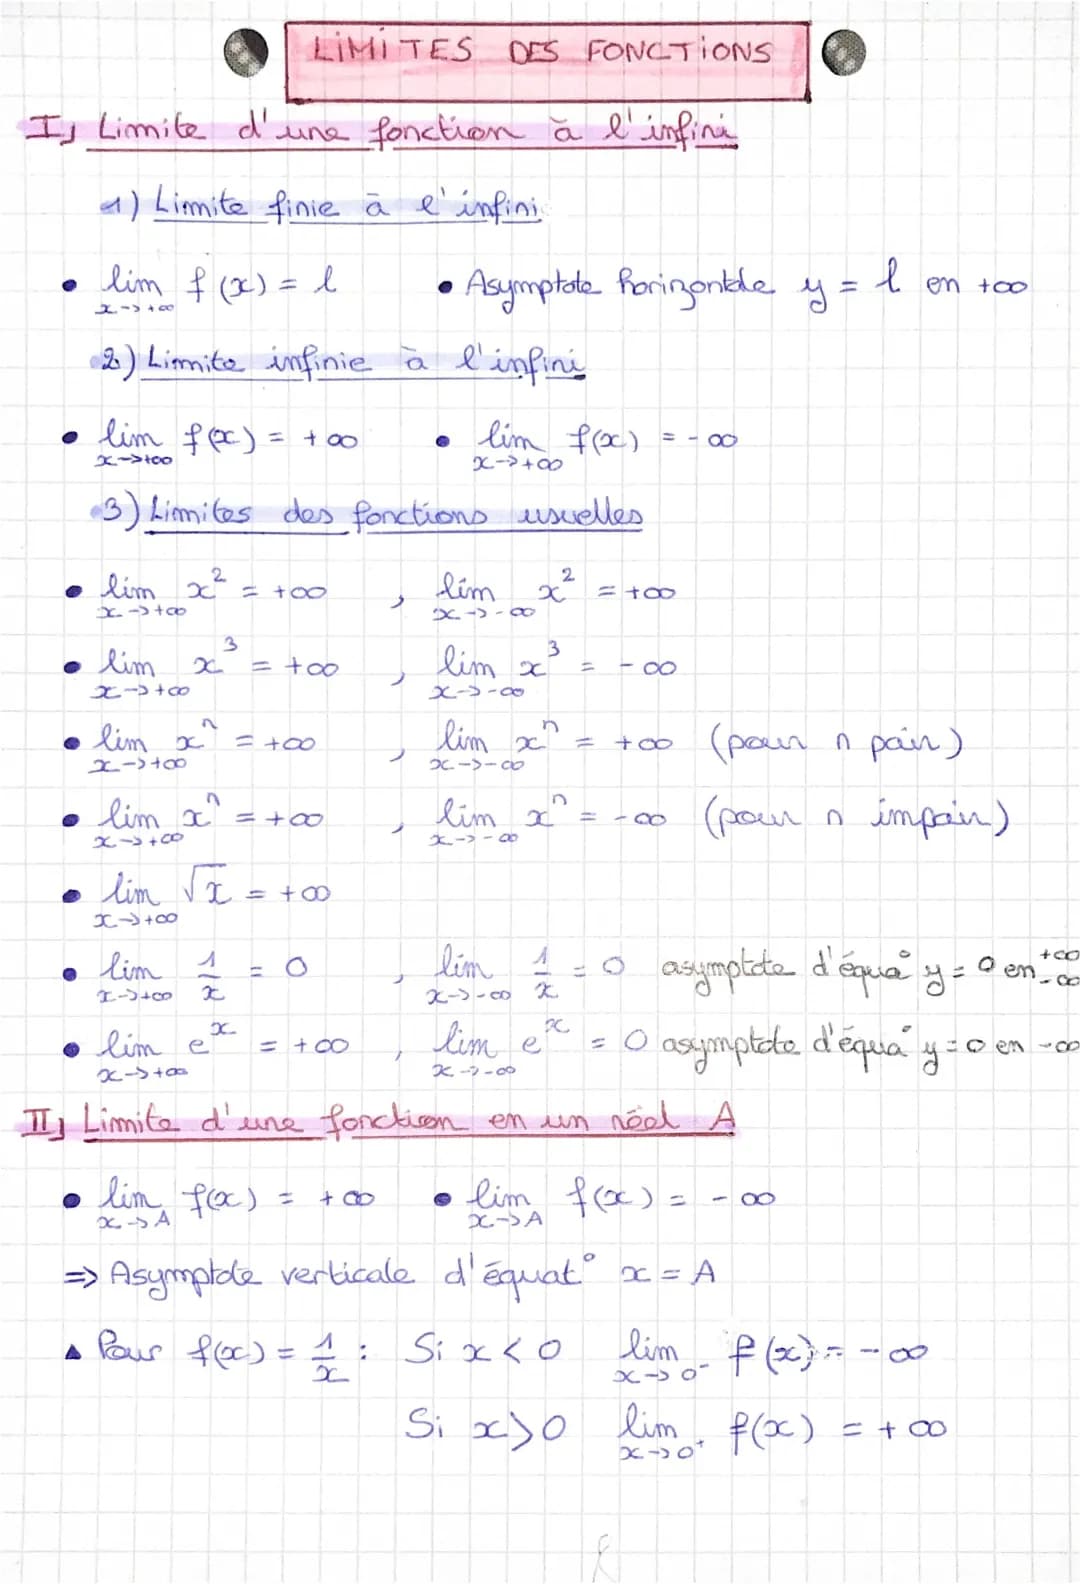 LIMITES DES FONCTIONS
I) Limite d'une fonction à l'infini
1) Limite finie à l'infini
• lim x->+∞ f(x) = l • Asymptote horizontale y = l en +∞
2) Limite infinie à l'infini
• lim x->+∞ f(x) = +∞ • lim x->+∞ f(x) = -∞
3) Limites des fonctions usuelles
• lim x->+∞ x² = +∞ , lim x->-∞ x² = +∞
• lim x->+∞ x³ = +∞ , lim x->-∞ x³ = -∞
• lim x->+∞ xⁿ = +∞ , lim x->-∞ xⁿ = +∞ (pour n pair)
• lim x->+∞ xⁿ = +∞ , lim x->-∞ xⁿ = -∞ (pour n impair)
• lim x->+∞ √x = +∞
• lim x->+∞ 1/x = 0 , lim x->-∞ 1/x = 0 asymptote d'équa° y = 0 en +∞ -∞
• lim x->+∞ eˣ = +∞ , lim x->-∞ eˣ = 0 asymptote d'équa° y = 0 en -∞
II) Limite d'une fonction en un réel A
• lim x->A f(x) = +∞ • lim x->A f(x) = -∞
=> Asymptote verticale d'équat° x = A
▲ Pour f(x) = 1/x : Si x < 0 lim x->0⁻ f(x) = -∞
Si x > 0 lim x->0⁺ f(x) = +∞